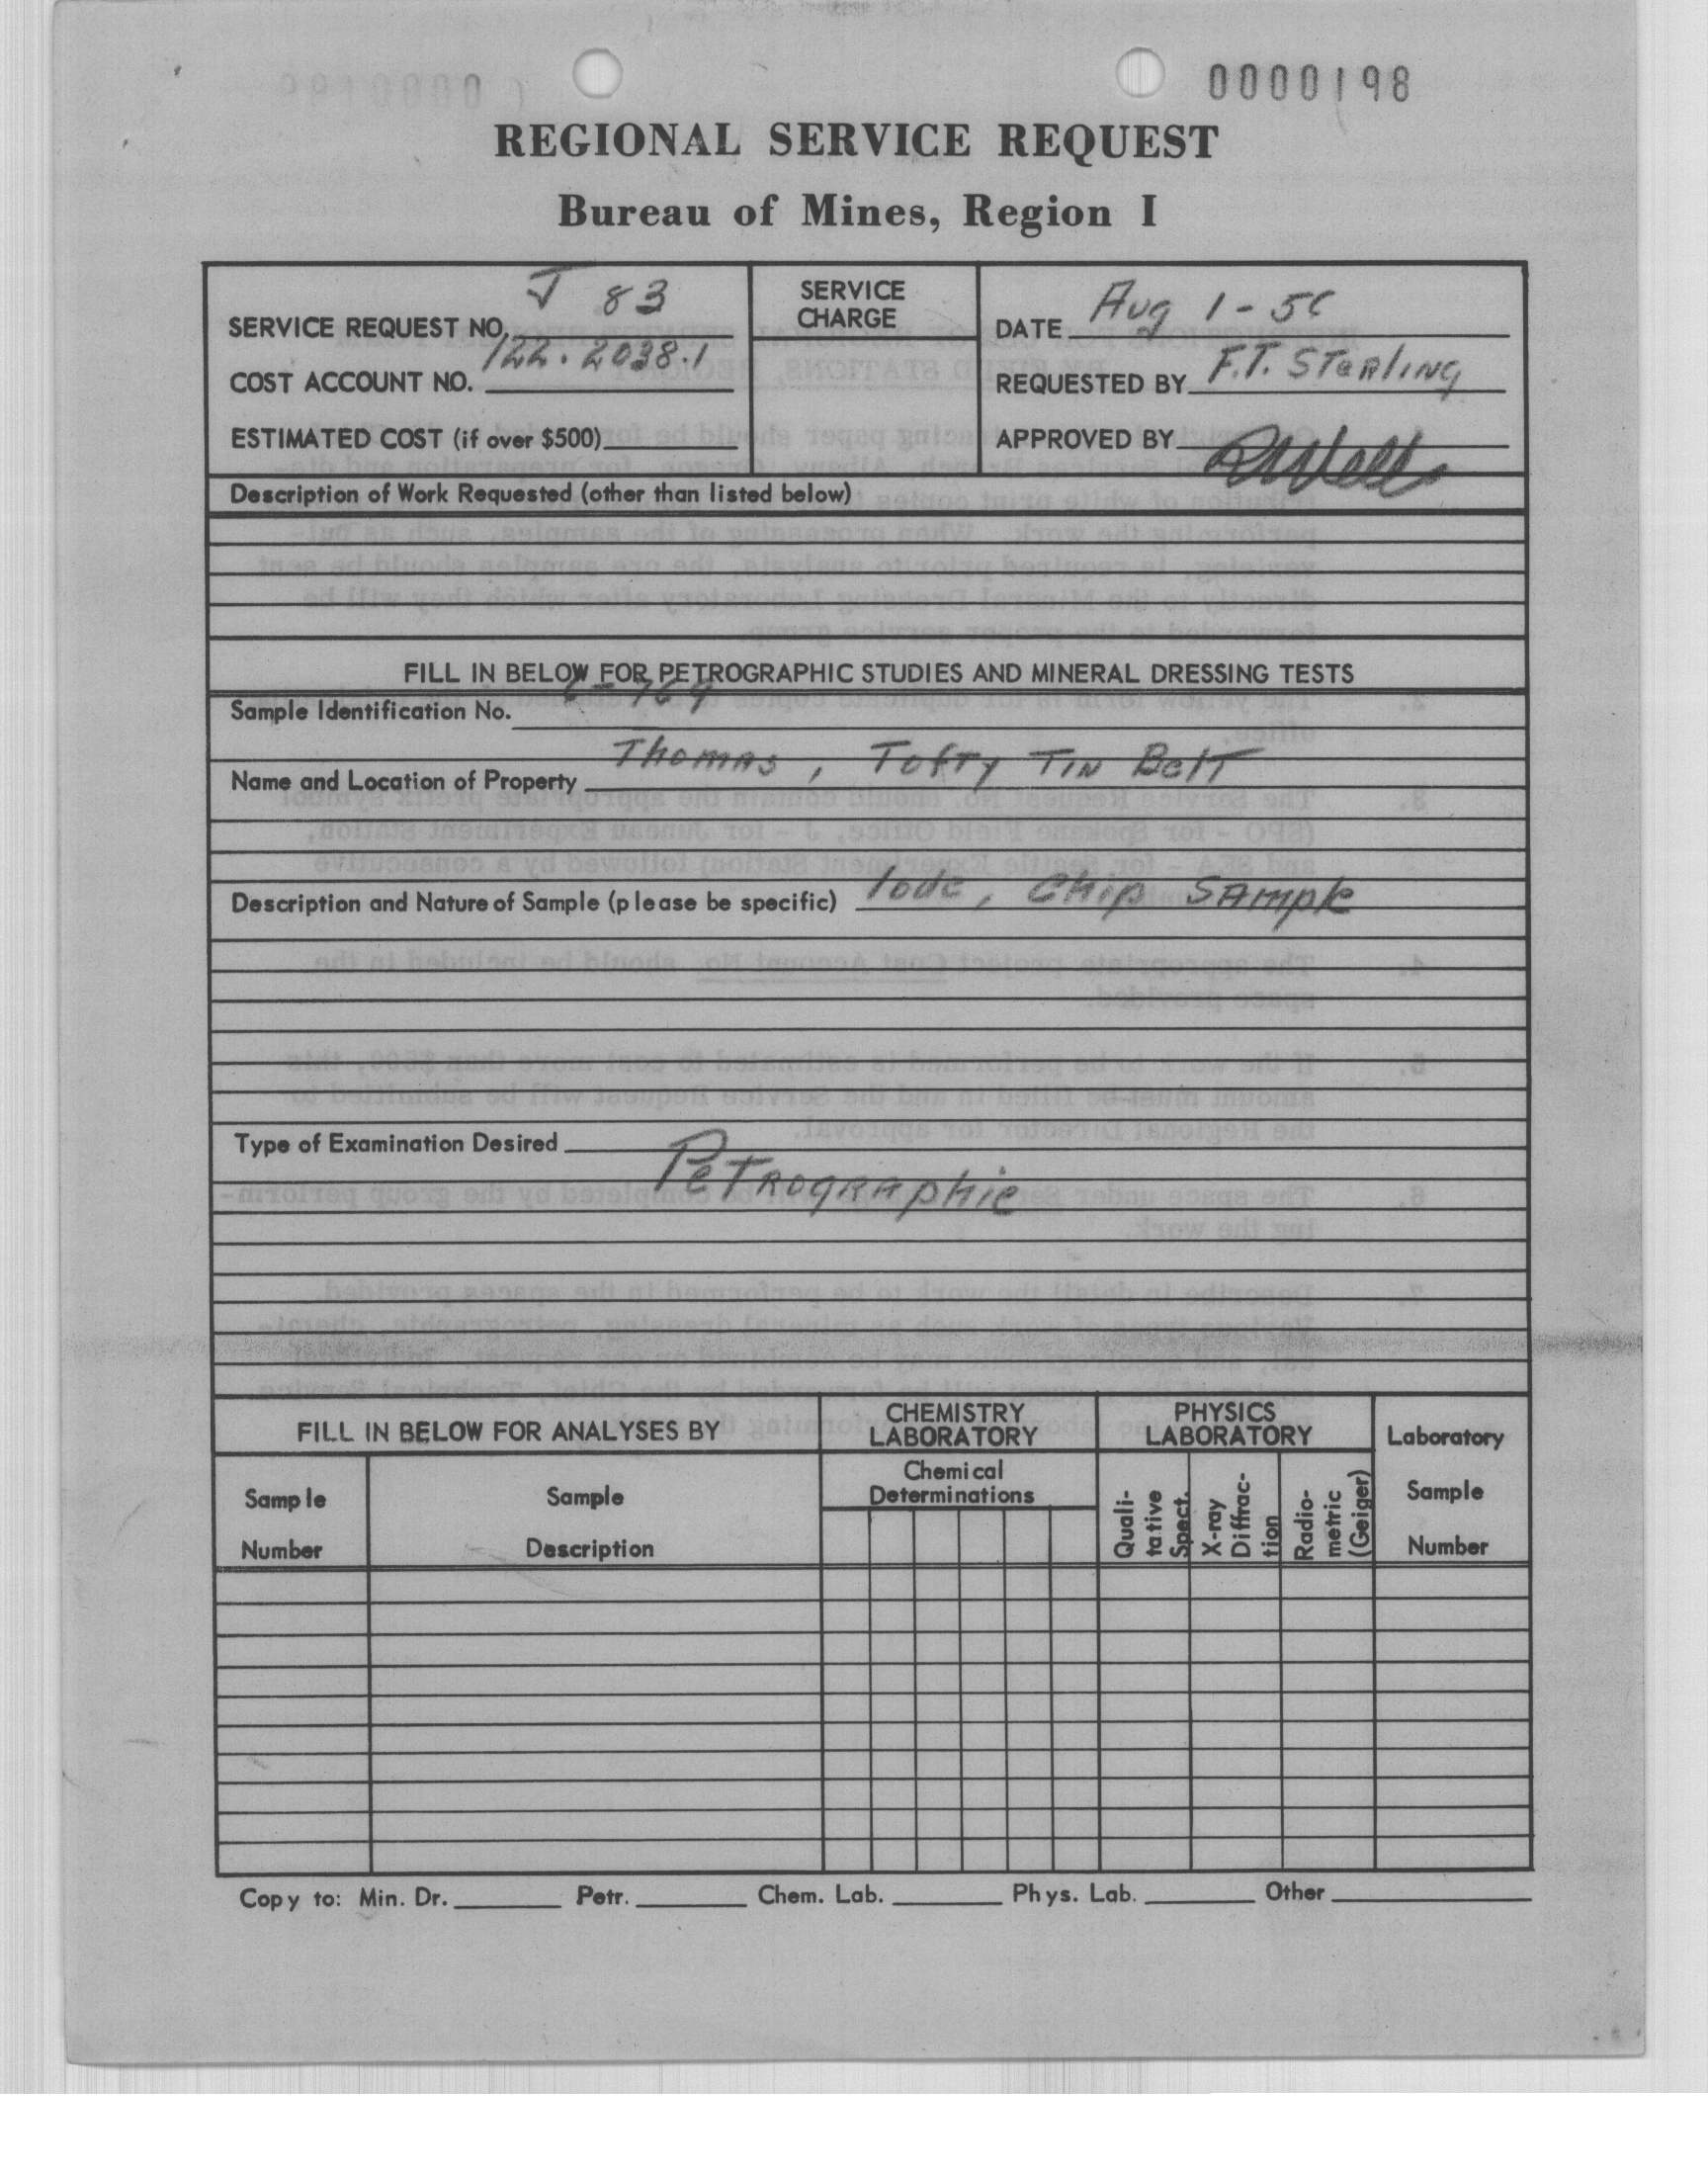 0000198
REGIONAL SERVICE REQUEST
Bureau of Mines, Region I
SERVICE REQUEST NO. J 83
COST ACCOUNT NO. 122.2038.1
ESTIMATED COST (if over $500)
SERVICE
CHARGE
DATE Aug 1-56
REQUESTED BY F.T. Sterling
APPROVED BY
Description of Work Requested (other than listed below)
FILL IN BELOW FOR PETROGRAPHIC STUDIES AND MINERAL DRESSING TESTS
Sample Identification No. 769
Name and Location of Property Thomas, Tofty Tin Belt
Description and Nature of Sample (please be specific) lode, Chip Sample
Type of Examination Desired Petrographic
FILL IN BELOW FOR ANALYSES BY
CHEMISTRY
LABORATORY
PHYSICS
LABORATORY
Laboratory
Sample
Number
Sample
Number
Sample
Description
Chemical
Determinations
Quali-
tative
Spect.
X-ray
Diffrac-
tion
Radio-
metric
(Geiger)
Copy to: Min. Dr. Petr. Chem. Lab. Phys. Lab. Other